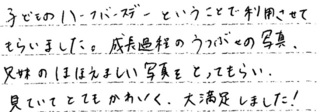 子どものハーフバースデーということで利用させて
もらいました。成長過程のうつぶせの写真、
兄妹のほほえましい写真をとってもらい、
見ていてとてもかわいく、大満足しました!